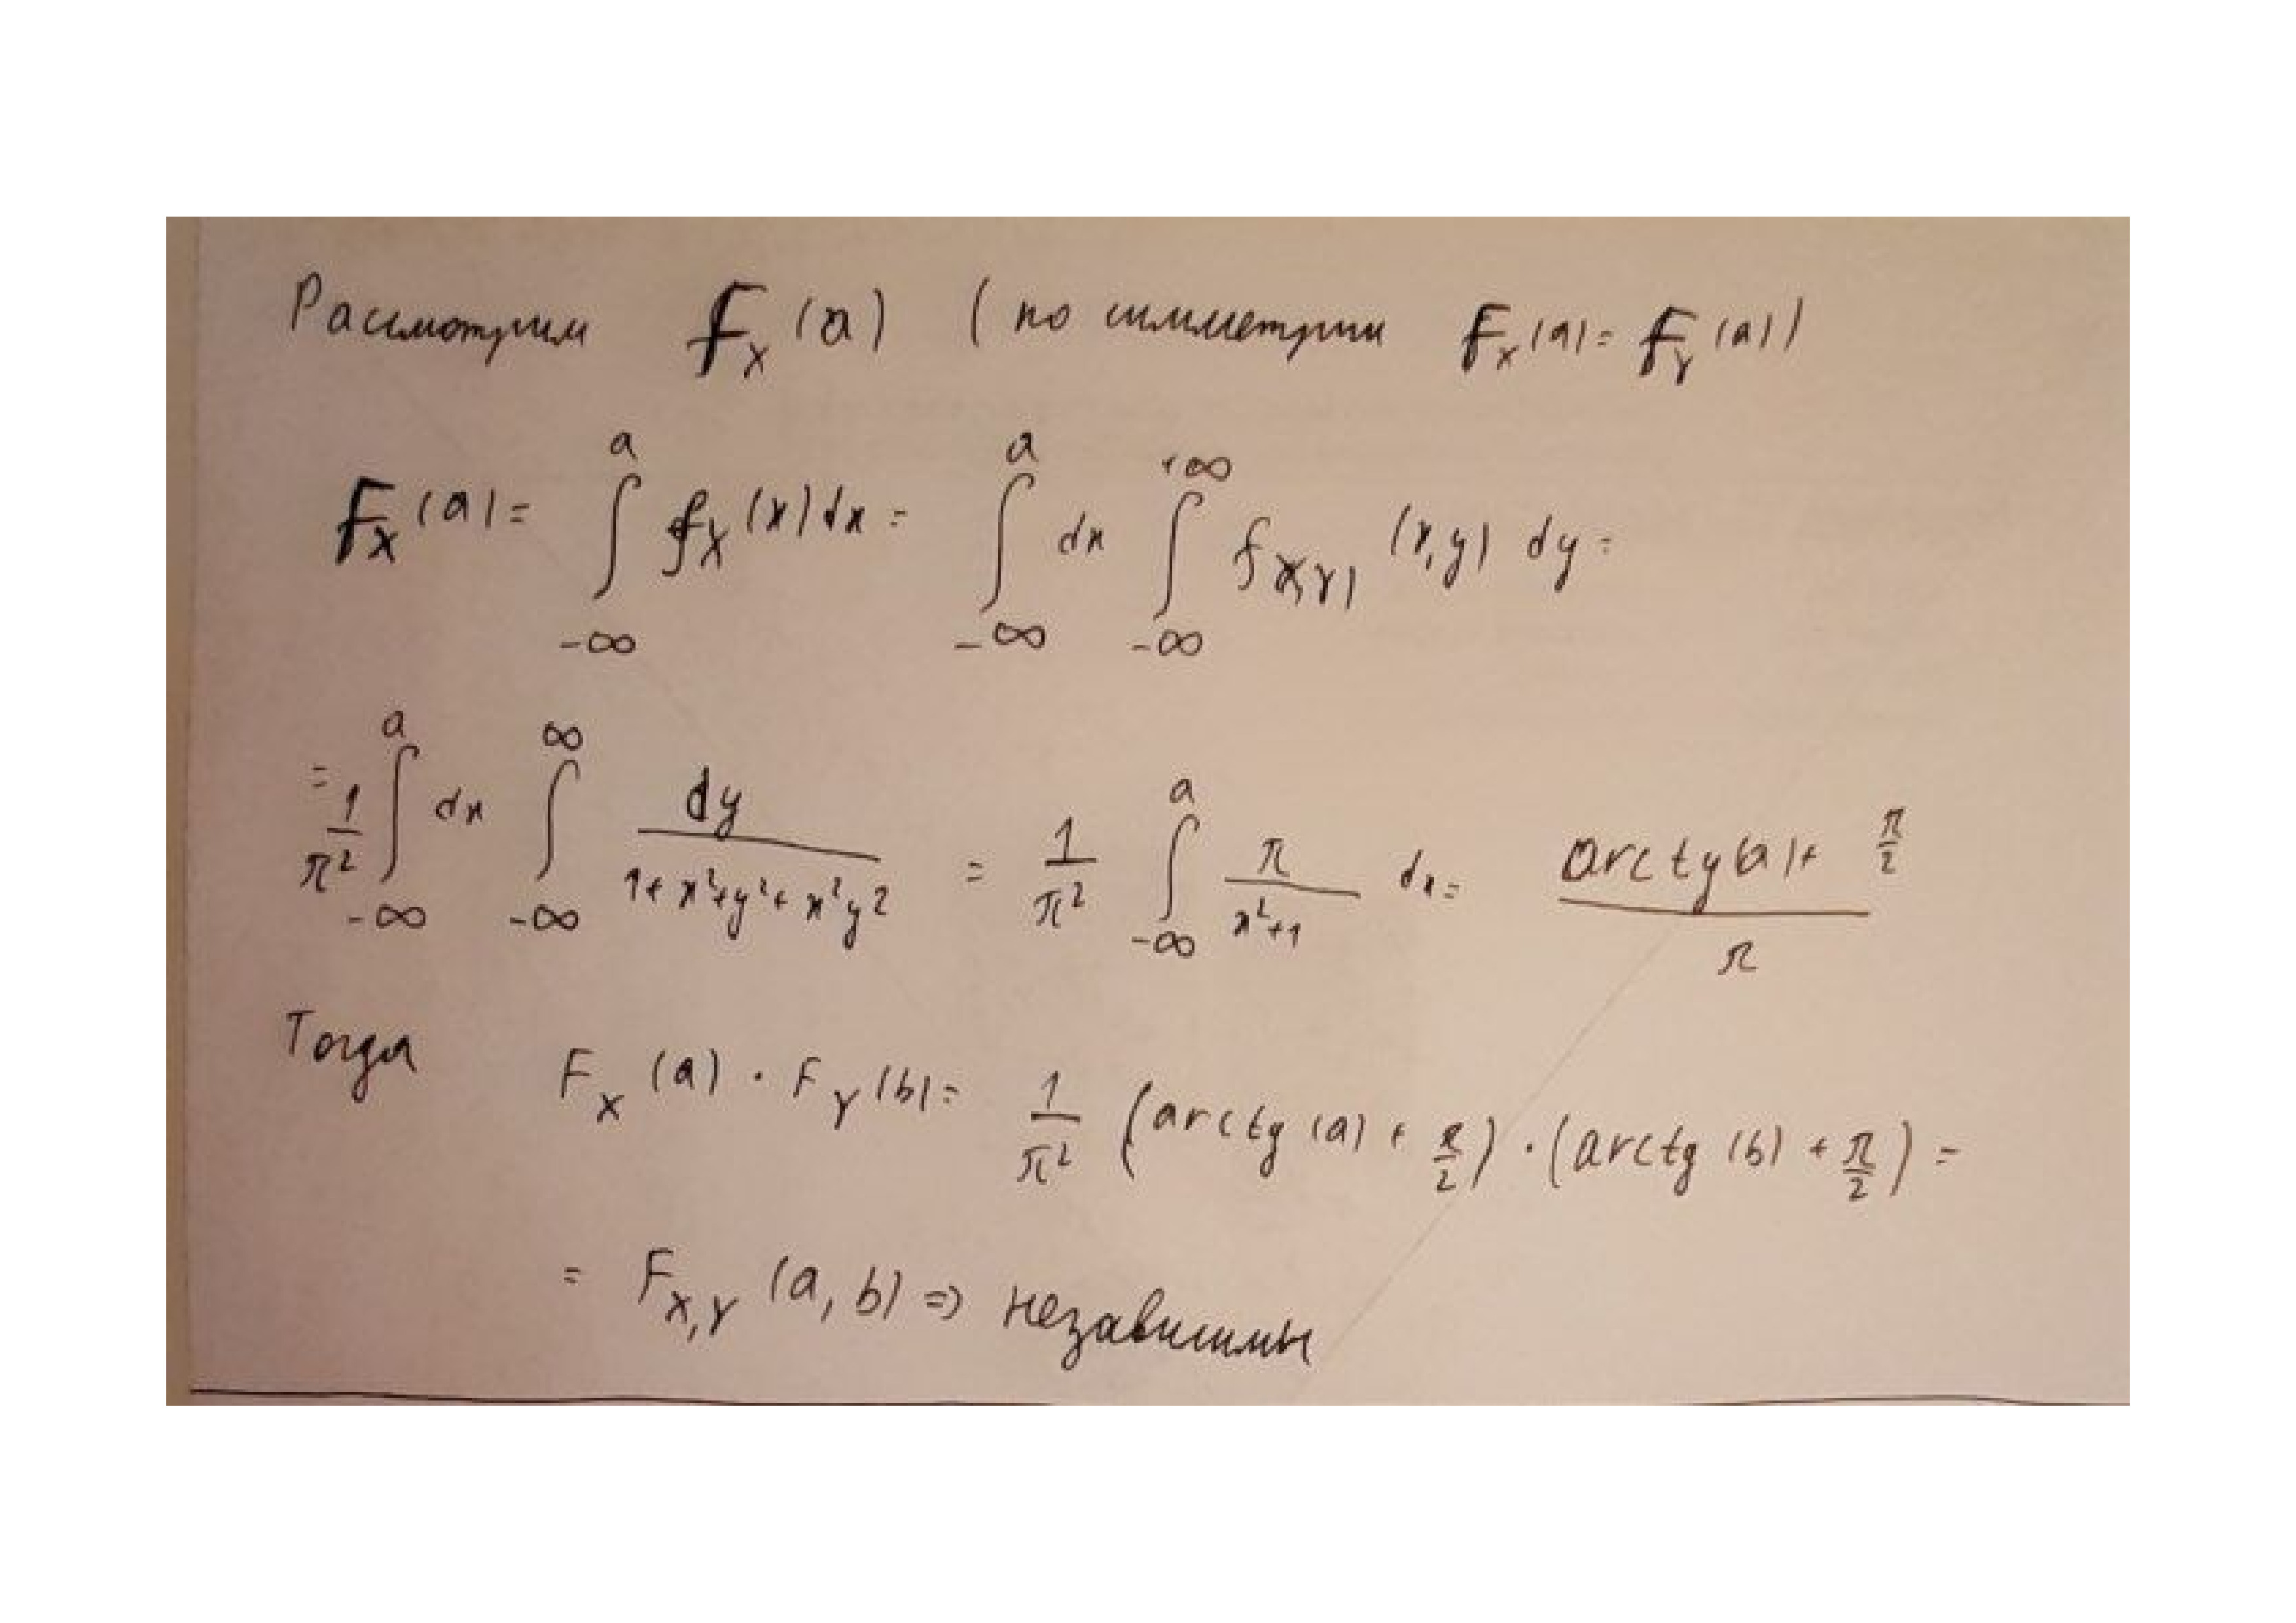 Рассмотрим F_X(a) (по симметрии F_X(a) = F_Y(a))
F_X(a) = ∫_{-∞}^{a} f_X(x)dx = ∫_{-∞}^{a} dx ∫_{-∞}^{+∞} f_{X,Y)}(x,y) dy =
= 1/π² ∫_{-∞}^{a} dx ∫_{-∞}^{∞} dy/(1+x²+y²+x²y²) = 1/π² ∫_{-∞}^{a} π/(x²+1) dx = (arctg(a) + π/2)/π
Тогда F_X(a) · F_Y(b) = 1/π² (arctg(a) + π/2) · (arctg(b) + π/2) =
= F_{X,Y}(a, b) => независимы